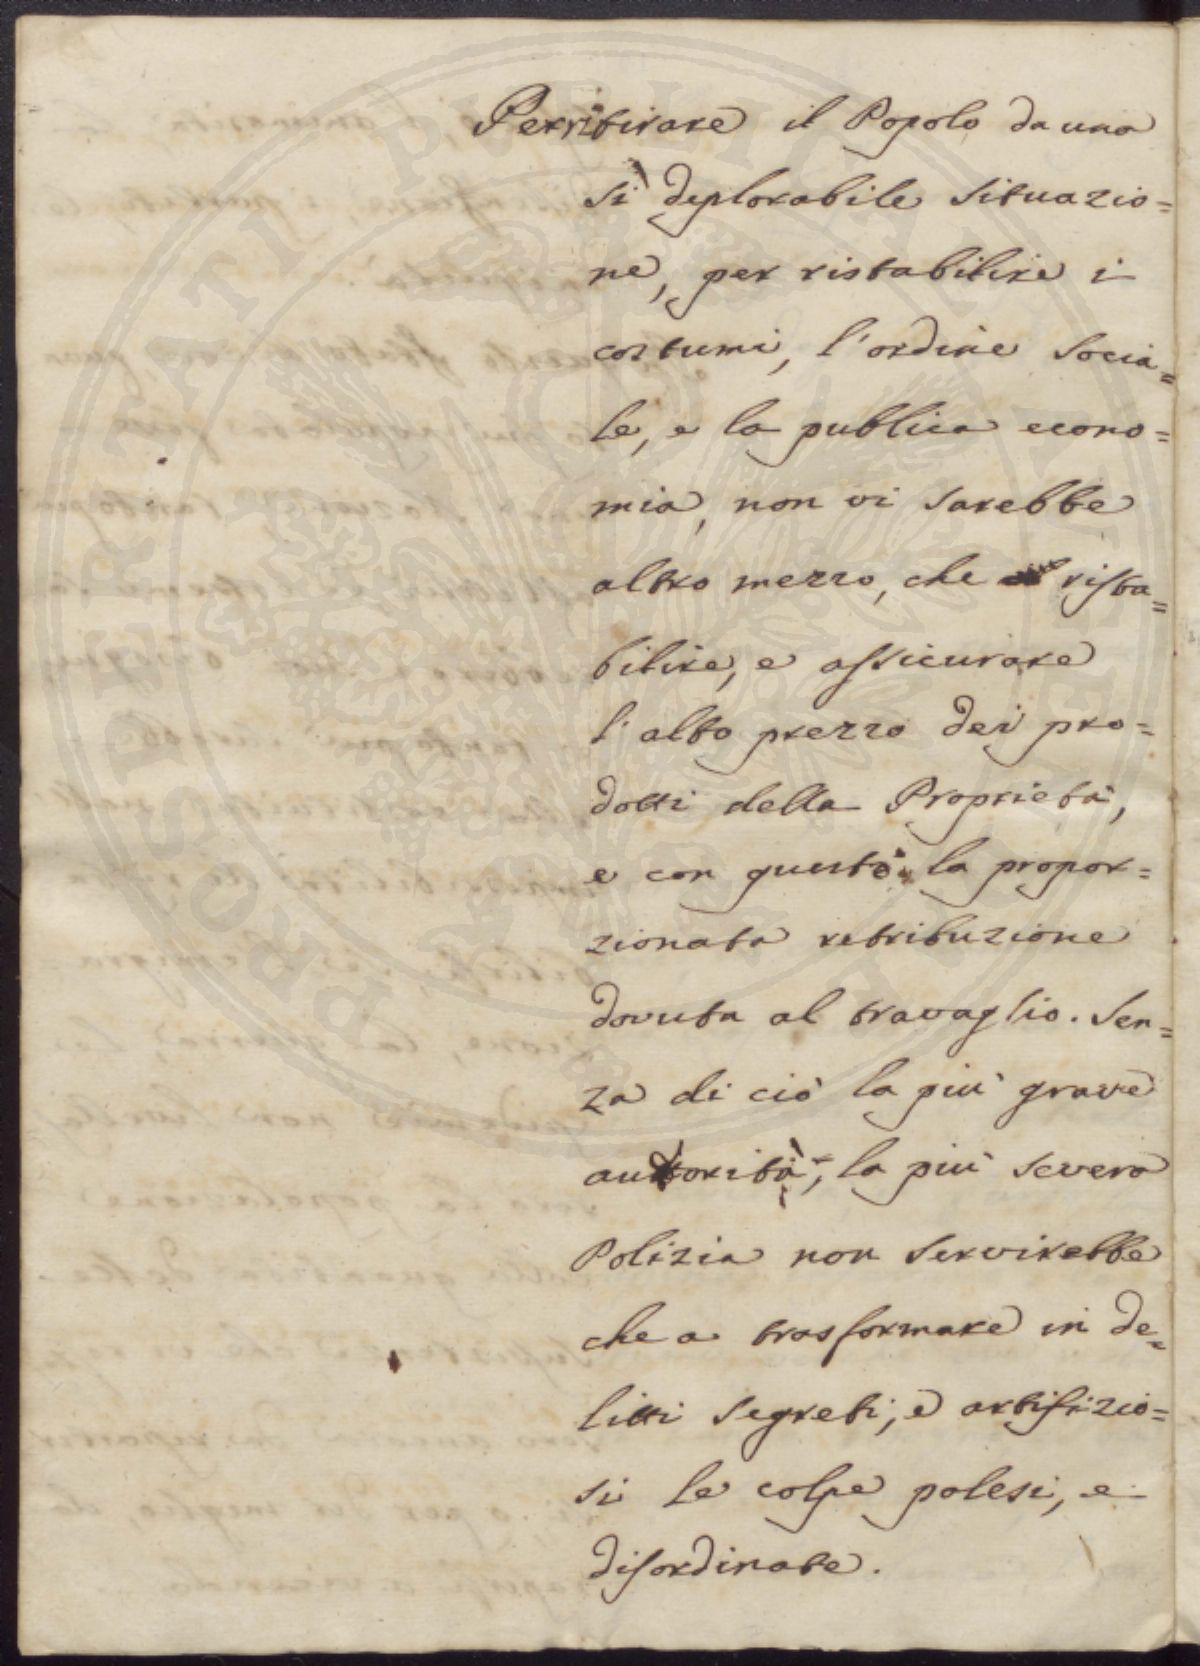 Perritirare il Popolo da una
sì deplorabile situazio=
ne, per ristabilire i
costumi, l'ordine socia=
le, e la publica econo=
mia, non vi sarebbe
altro mezzo, che rista=
bilire, e assicurare
l'alto prezzo dei pro=
dotti della Proprietà,
e con questo la propor=
zionata retribuzione
dovuta al travaglio. Sen=
za di ciò la più grave
autorità, la più severa
Polizia non servirebbe
che a trasformare in de=
litti segreti, e artifizio=
si le colpe palesi, e
disordinate.
PROSPERITATI PVBLICAE